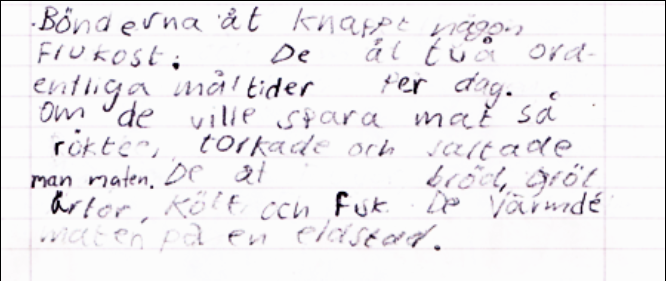 ·Bönderna åt knappt någon
Frukost. De åt två ord-
entliga måltider Per dag.
Om de ville spara mat så
rökte, torkade och saltade
man maten. De åt bröd, gröt
ärtor, kött och Fisk. De värmde
maten på en eldstad.